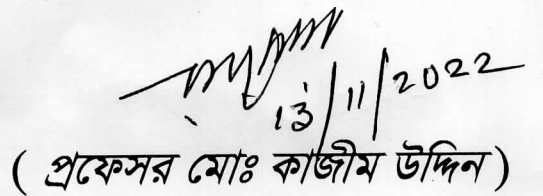 13/11/2022
( প্রফেসর মোঃ কাজীম উদ্দিন )